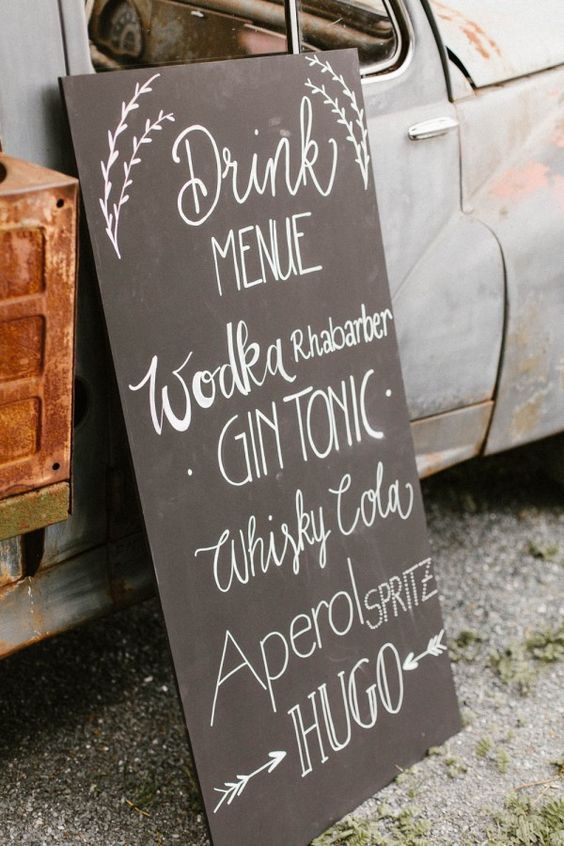 Drink
MENUE
Wodka Rhabarber
· GIN TONIC ·
Whisky Cola
Aperol SPRITZ
HUGO